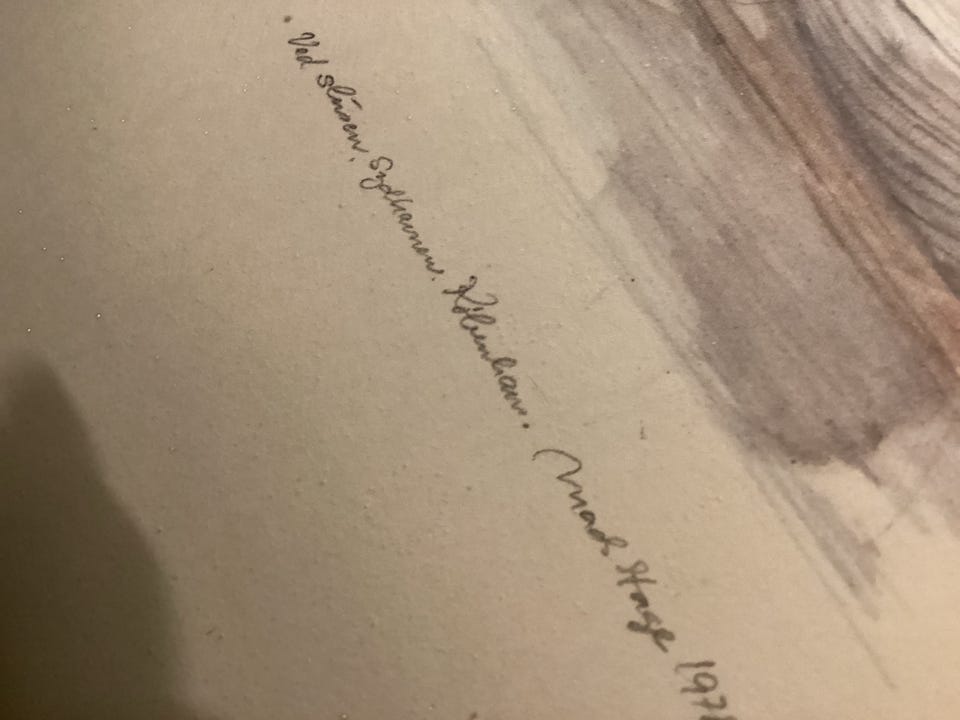 Ved slusen. Sydhavnen. København. Mads Stage 1978